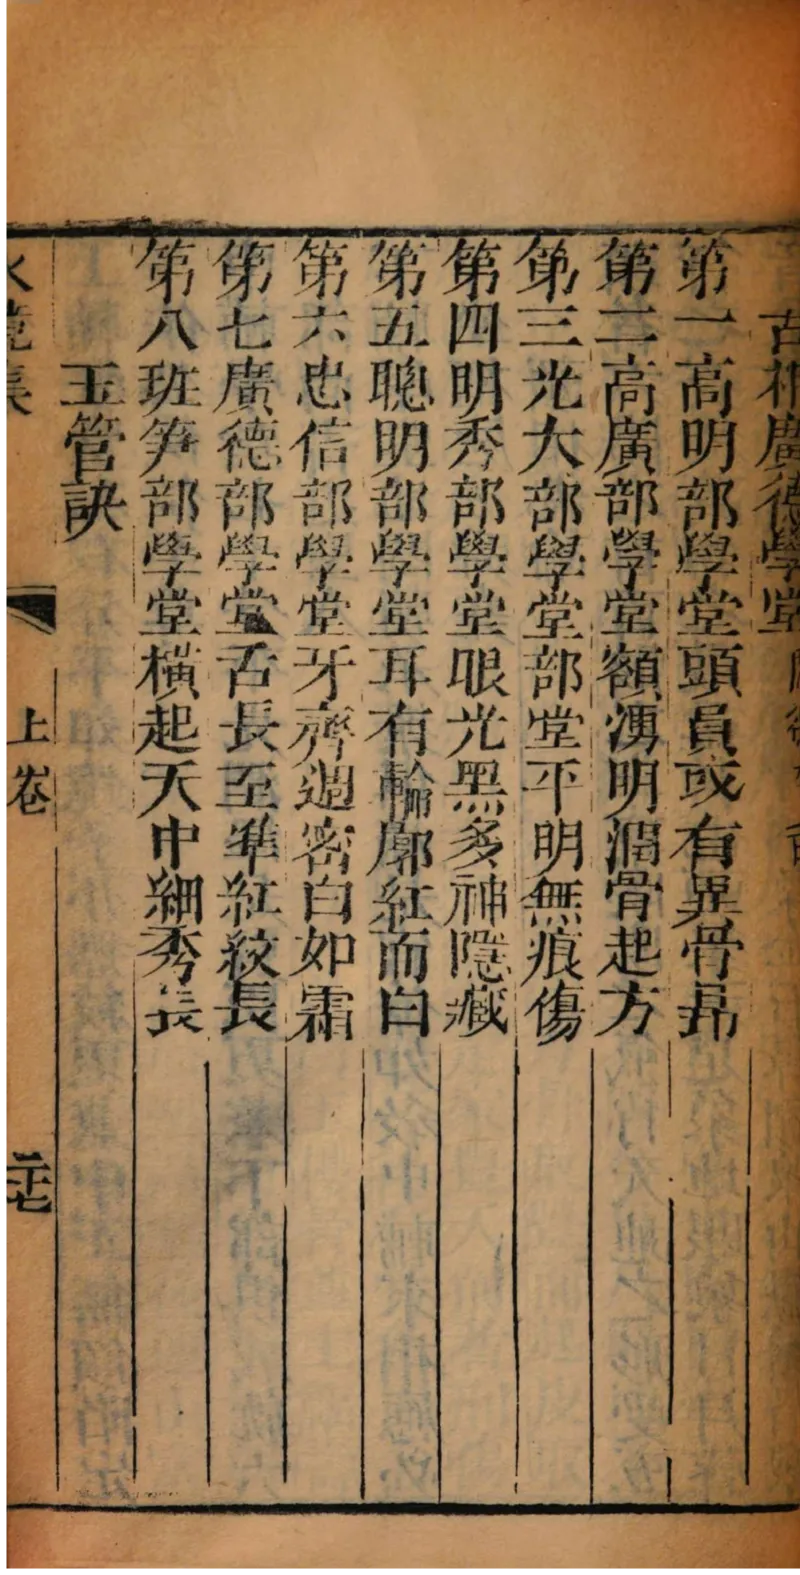 古相廣德學堂
第一高明部學堂頭員或有異骨昻
第二高廣部學堂額湧明潤骨起方
第三光大部學堂部堂平明無痕傷
第四明秀部學堂眼光黑多神隱藏
第五聰明部學堂耳有輪廓紅而白
第六忠信部學堂牙齊週密白如霜
第七廣德部學堂舌長至準紅紋長
第八班笋部學堂橫起天中細秀長
玉管訣
上卷
二十七